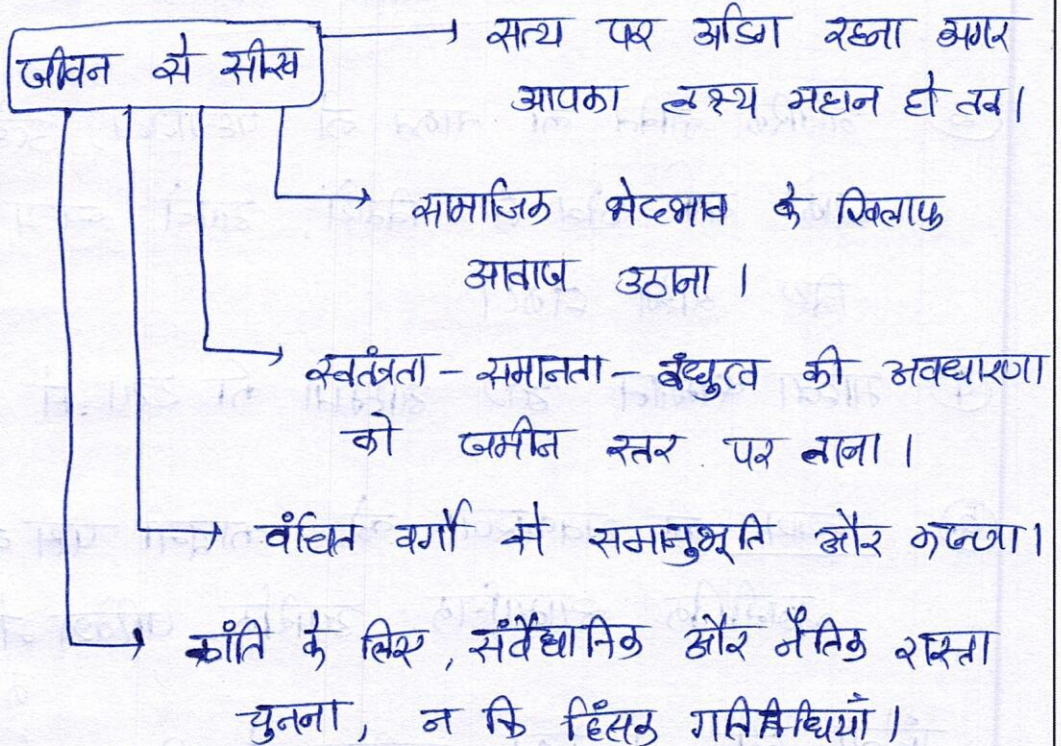 जीवन से सीख
सत्य पर अडिग रहना अगर
आपका लक्ष्य महान हो तब।
सामाजिक भेदभाव के खिलाफ
आवाज उठाना।
स्वतंत्रता - समानता - बंधुत्व की अवधारणा
को जमीन स्तर पर लाना।
वंचित वर्गों से समानुभूति और करुणा।
क्रांति के लिए, संवैधानिक और नैतिक रास्ता
चुनना, न कि हिंसक गतिविधियाँ।